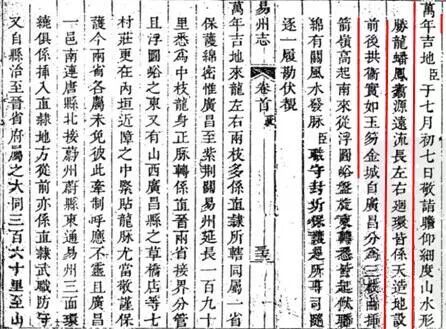 萬年吉地臣于七月初七日敬請瞻仰細度山水形
勝龍蟠鳳翥源遠流長左右迴環皆係天造地設
前後拱衛實如玉笏金城自廣昌分為三樓曲折
箭嶺高起南來從浮圖峪盤旋更轉悉皆起伏聯
綿有關風水發脉臣職守封圻保護是所專司
逐一履勘伏覩
易州志
卷首
萬年吉地來龍左右兩枝多係直隸所轄同屬一省
保護綿密惟廣昌至紫荆關易州延長一百九十
里悉為中枝龍身正脉轉係直晉兩省接界分管
且浮圖峪之東又有山西廣昌縣之草橋店等七
村莊更在內垣近障之中緊貼龍脉尤當敬謹保
護今兩省各屬未免彼此牽制呼應不靈且廣昌
一邑南連唐縣北接蔚州蔚縣東通易州三面環
繞俱係插入直隸地方從前亦係直隸武職防守
又自縣治至晉省府屬之大同三百六十里至山